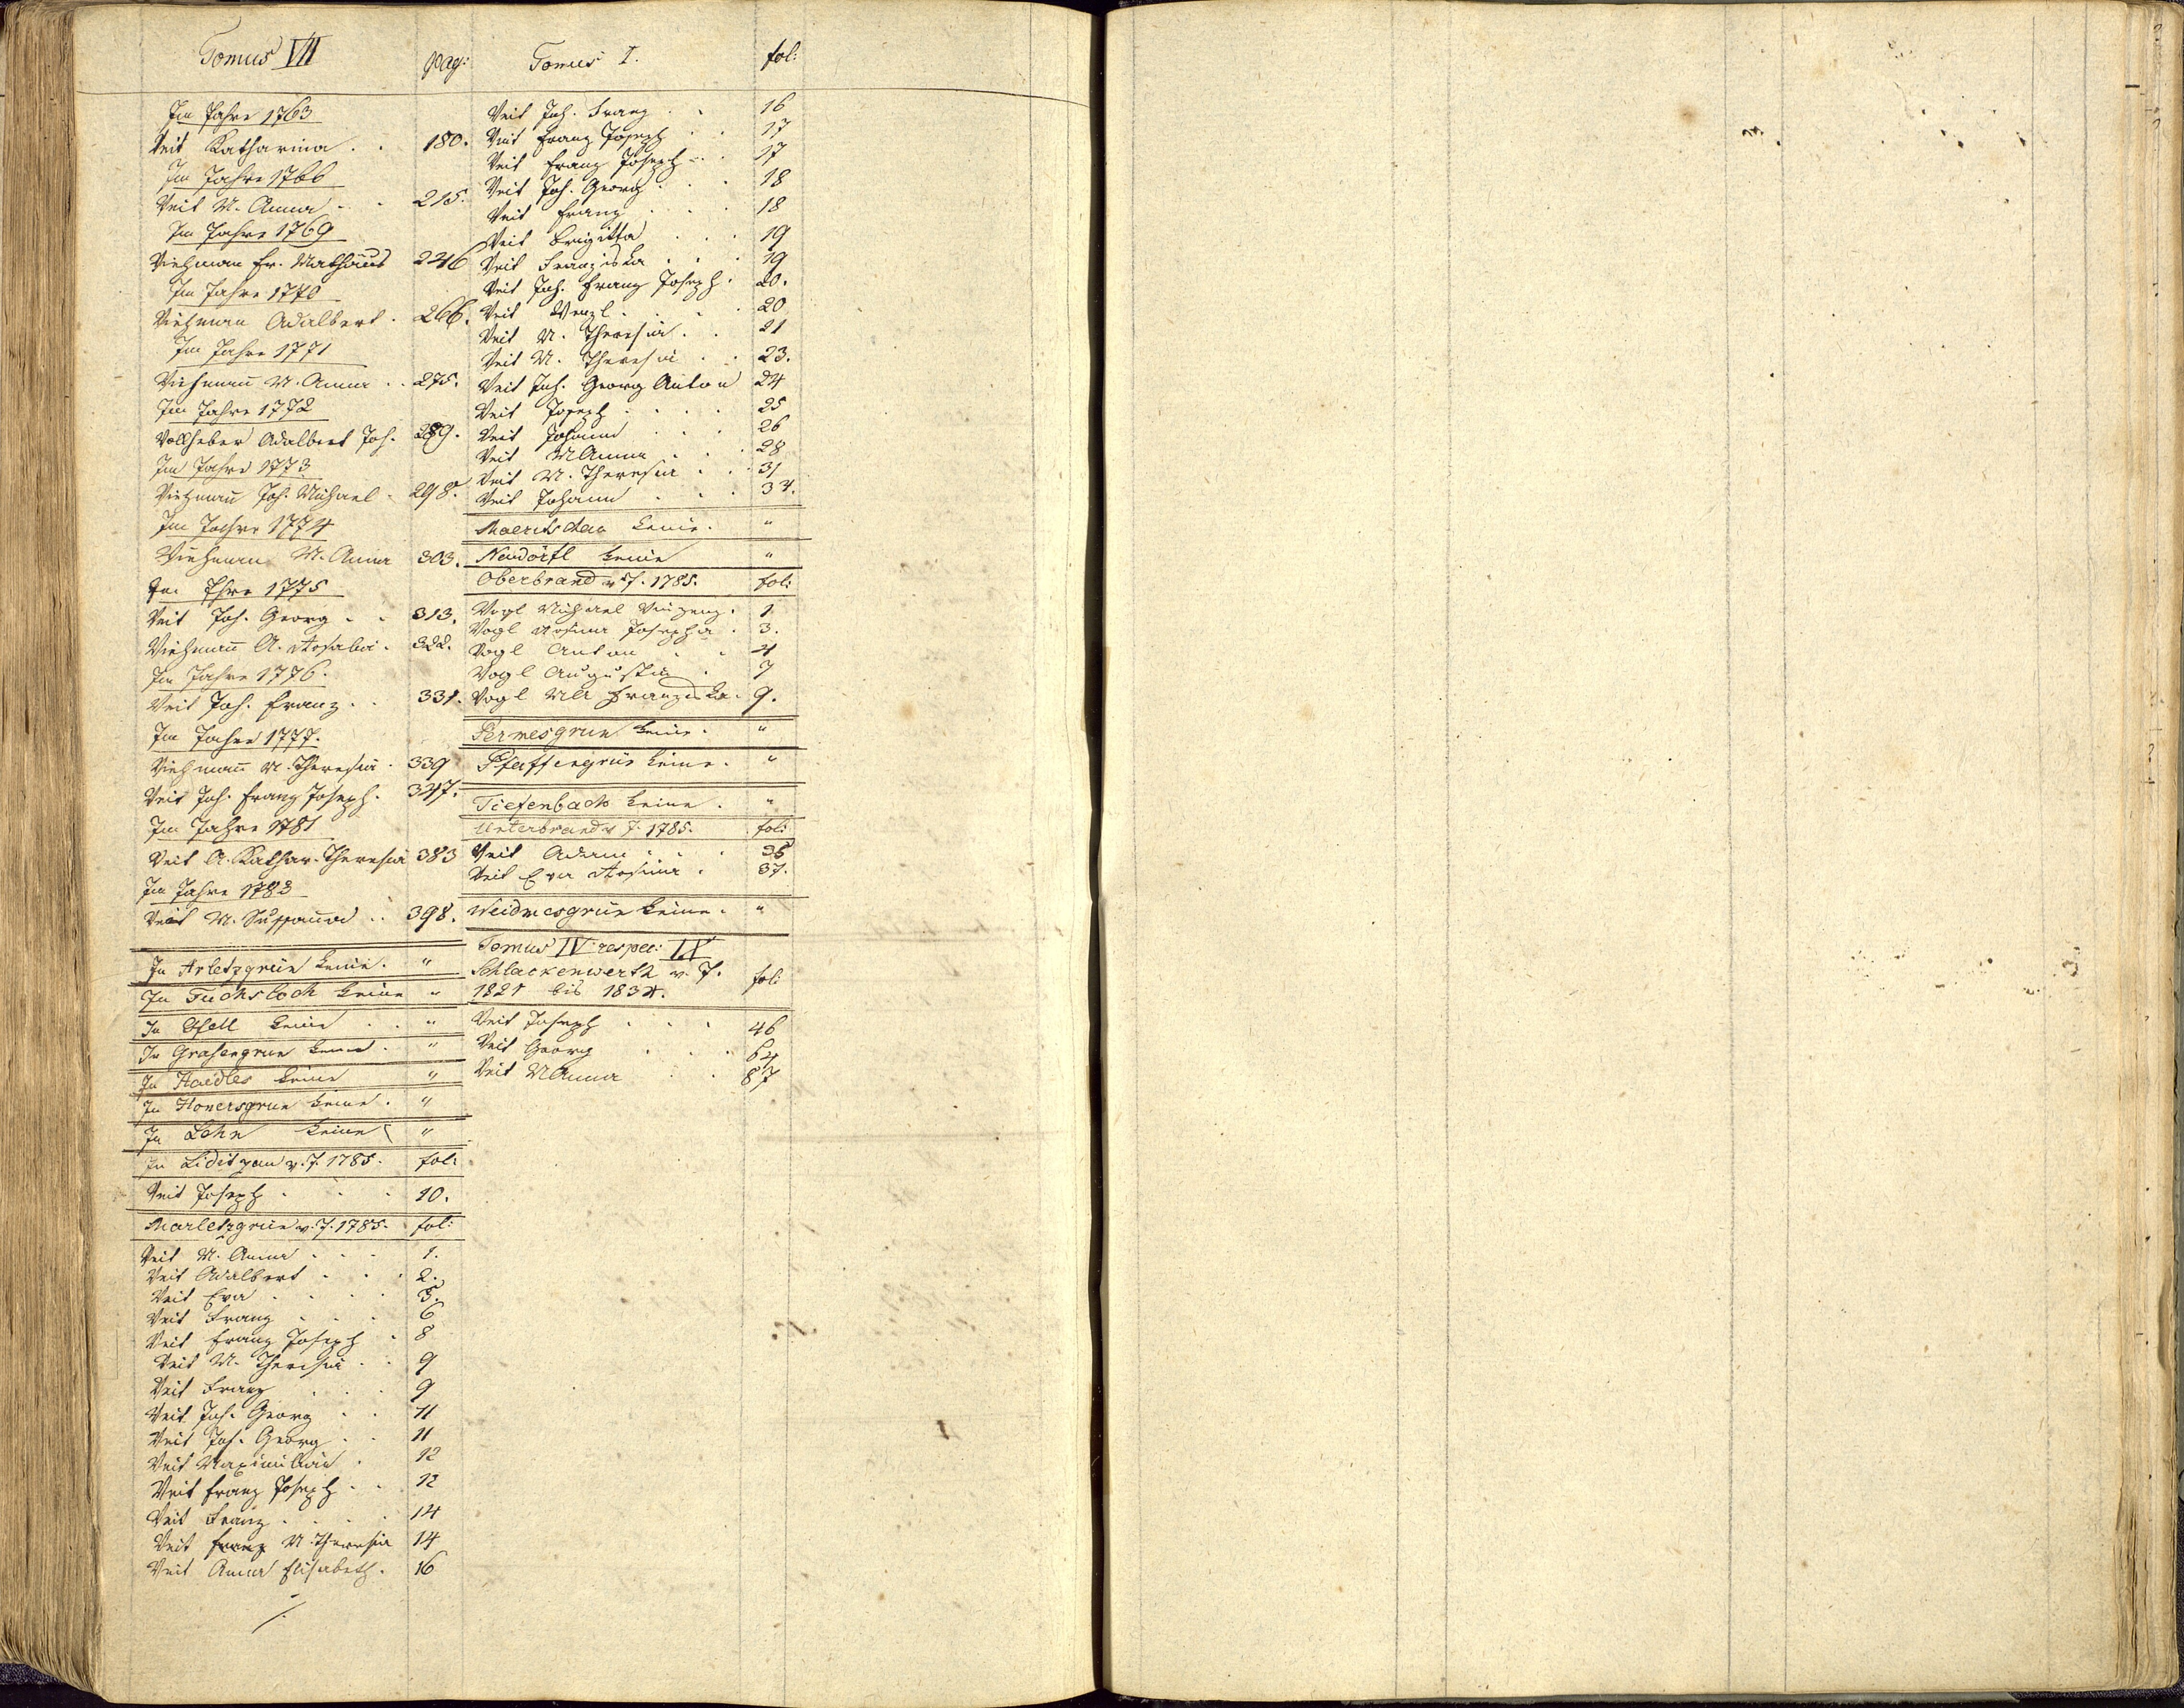 Tomus VII pag:
Im Jahre 1763
Veit Katharina . . 180.
Im Jahre 1766
Veit M. Anna . . 215.
Im Jahre 1769
Viehman Fr. Mathäus 246
Im Jahre 1770
Viehman Adalbert . 266.
Im Jahre 1771
Viehman̄ M. Anna . . 275.
Im Jahre 1772
Vollheber Adalbert Joh. 289.
Im Jahre 1773
Viehman̄ Joh. Michael . 298.
Im Jahre 1774
Viehman M. Anna 303.
Im Jhre 1775
Veit Joh. Georg . . 313.
Viehman̄ A. Rosalia . 322.
Im Jahre 1776.
Veit Joh. Franz . . 331.
Im Jahre 1777.
Viehman̄ M. Theresia . 339
Veit Joh. Franz Joseph . 347.
Im Jahre 1781
Veit A. Kathar. Theresia 383
Im Jahre 1783
Veit M. Sussanna . . 398.
In Arletzgrün keine. "
In Fuchsloch keine "
In Gfell keine . . "
In Grasengrün keine . "
In Haidles keine "
In Honersgrün keine . "
In Lohn keine "
In Liditzau v. J. 1785. fol:
Veit Joseph . . . 10.
Marletzgrün v. J. 1785. fol:
Veit M. Anna . . . 1.
Veit Adalbert . . . 2.
Veit Eva . . . . 5.
Veit Franz . . . 6
Veit Franz Joseph . 8
Veit M. Theresia . . 9
Veit Franz . . . 9
Veit Joh. Georg . . 11
Veit Joh. Georg . . 11
Veit Maximilian . 12
Veit Franz Joseph . . 12
Veit Franz . . . . 14
Veit Franz M. Theresia 14
Veit Anna Elisabeth . 16
/.
Tomus I. fol:
Veit Joh. Franz . . 16
Veit Franz Joseph . . 17
Veit Franz Joseph . . 17
Veit Joh. Georg . . . 18
Veit Franz . . . 18
Veit Brigitta . . . 19
Veit Franziska . . . 19
Veit Joh. Franz Joseph . 20.
Veit Wenzl . . . . 20
Veit M. Theresia . . 21
Veit M. Theresia . . 23.
Veit Joh. Georg Anton 24
Veit Joseph . . . . 25
Veit Johann . . . 26
Veit MAnna . . . 28
Veit M. Theresia . . . 31
Veit Johann . . . 34.
Maeritschau keine. "
Neudörfl keine "
Oberbrand v. J. 1785. fol:
Vogl Michael Vinzenz . 1
Vogl Rosina Josepha . 3.
Vogl Anton . . 4
Vogl Augustin . 7
Vogl MA Franziska . 9.
Permesgrün keine . "
Pfaffengrün keine . "
Tiefenbach keine . "
Unterbrand v. J. 1785. fol:
Veit Adam . . . 35
Veit Eva Rosina . 37.
Weidmesgrün keine . "
Tomus IV respec: IX
Schlackenwerth v. J.
1821 bis 1834. fol:
Veit Joseph . . . 46
Veit Georg . . . 64
Veit MAnna . . 87